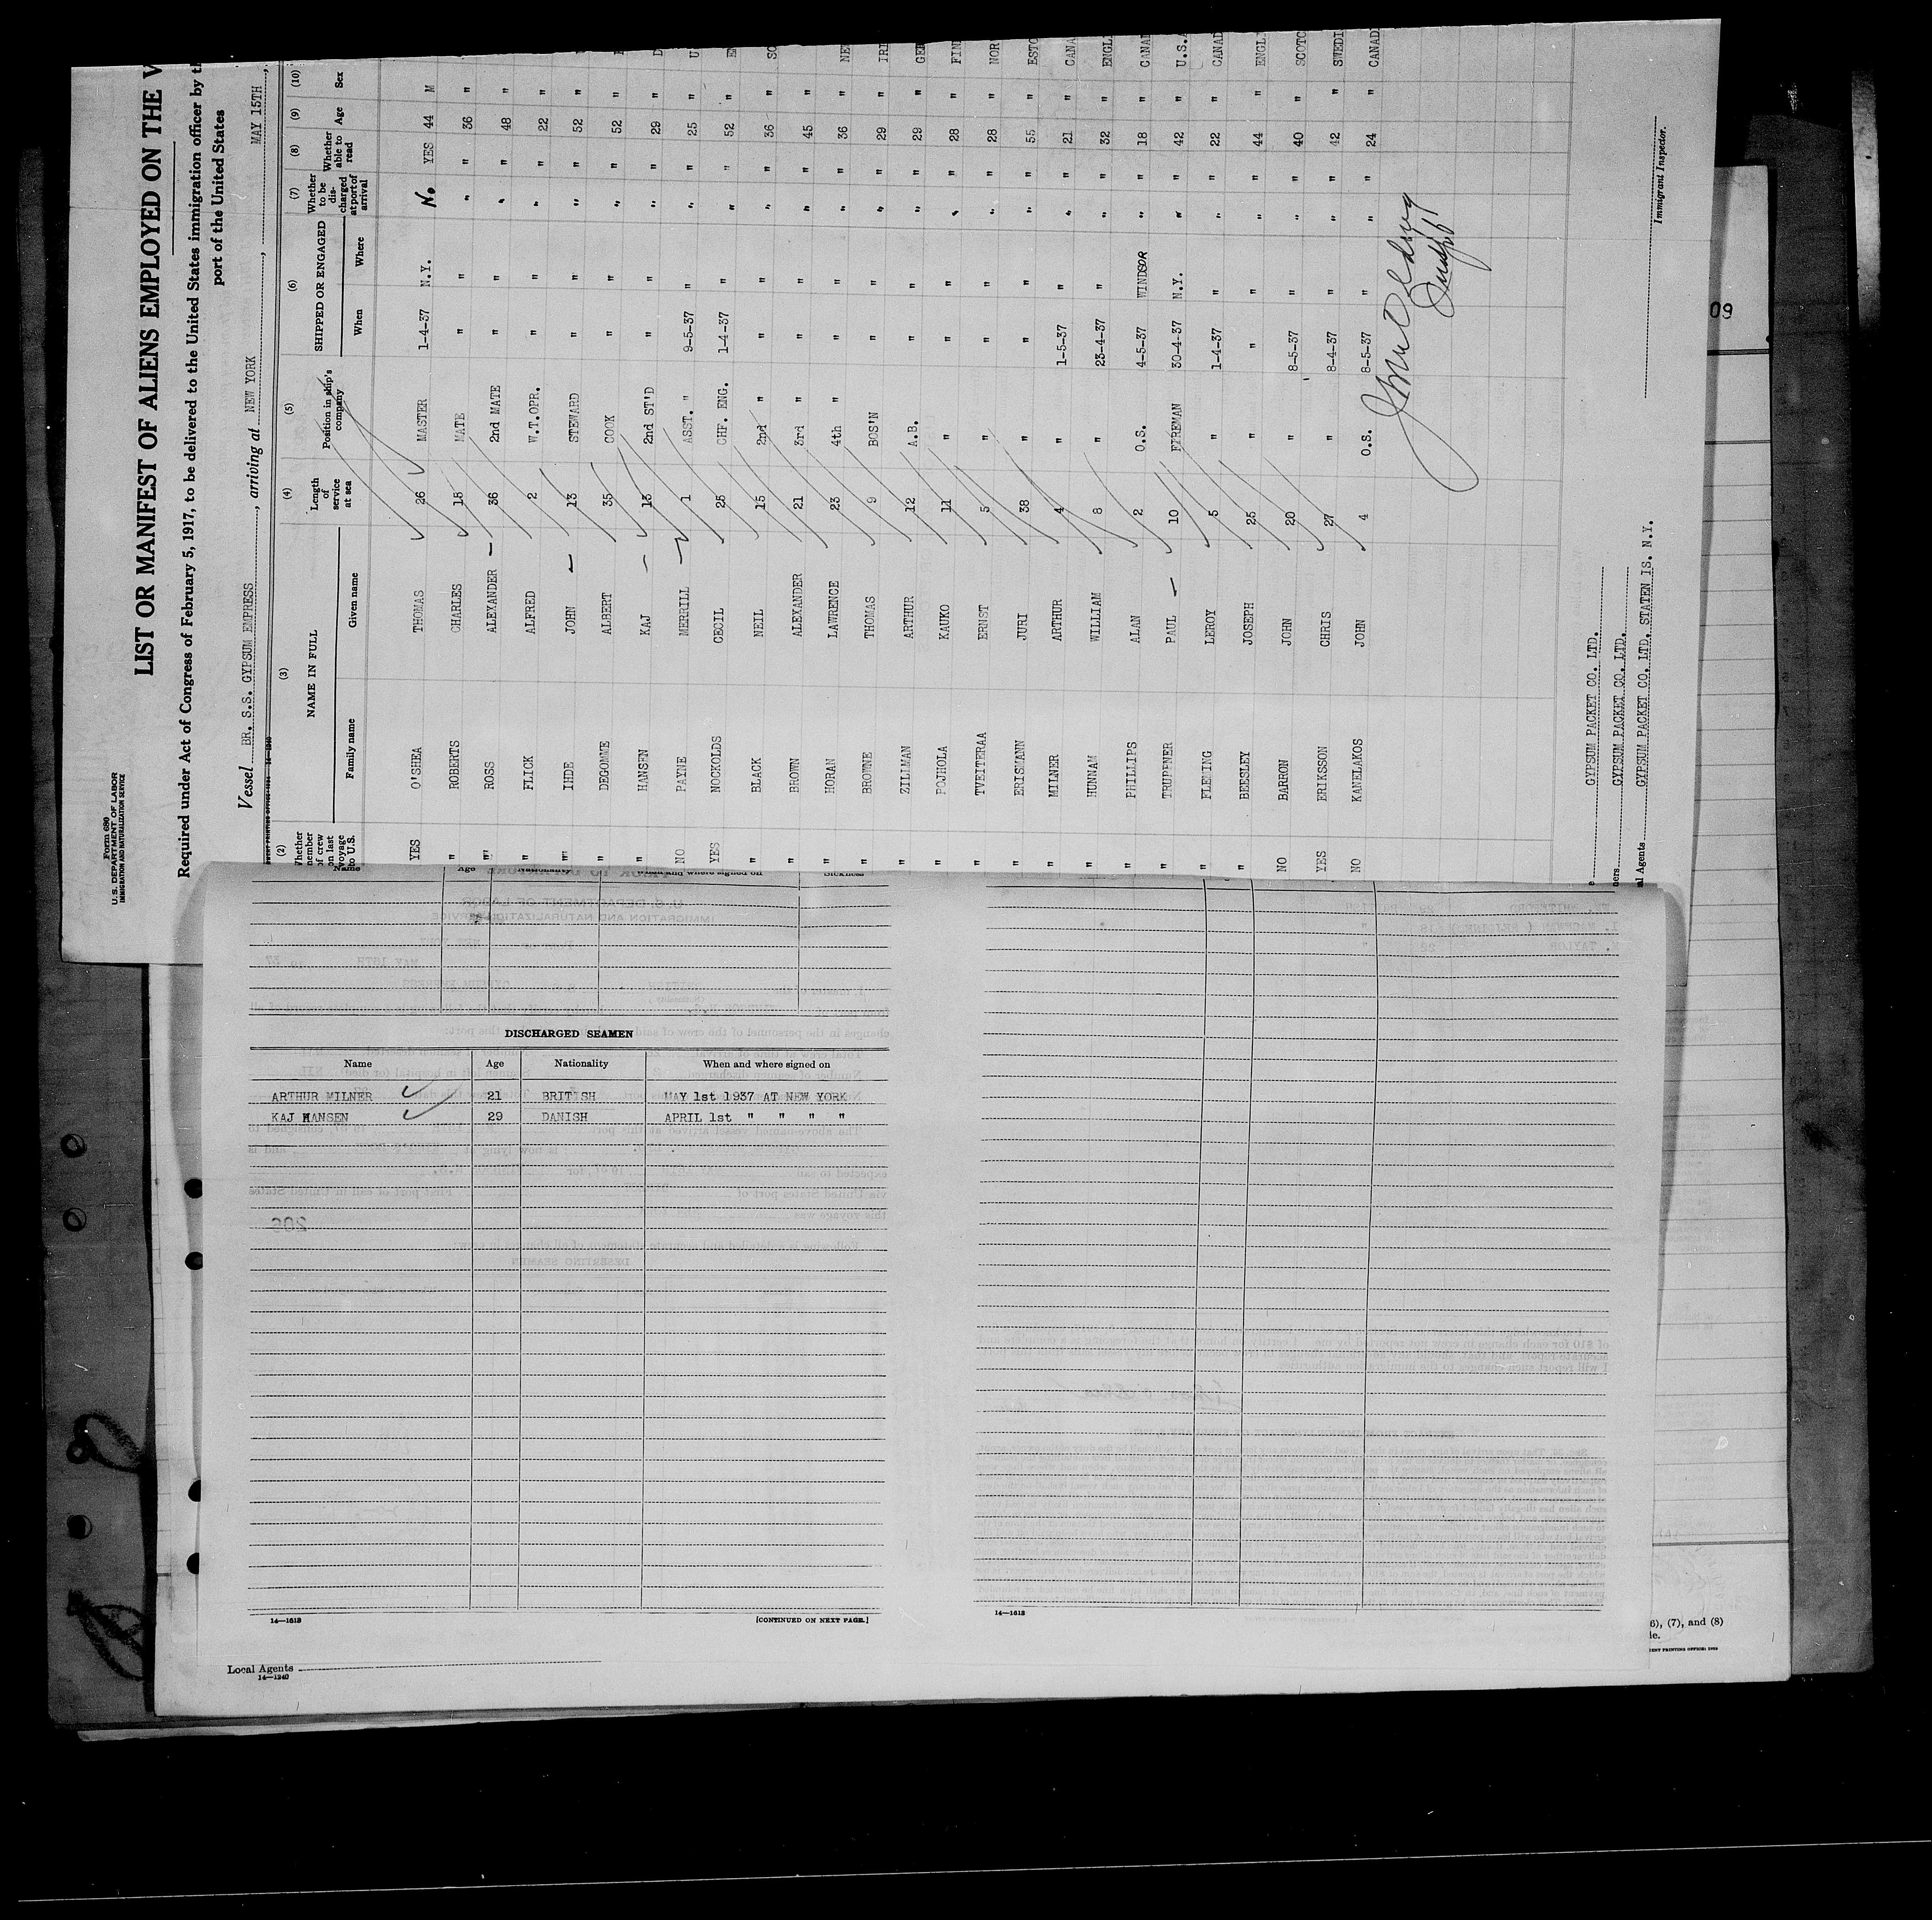 Form 680
U. S. DEPARTMENT OF LABOR
IMMIGRATION AND NATURALIZATION SERVICE
LIST OR MANIFEST OF ALIENS EMPLOYED ON THE V
Required under Act of Congress of February 5, 1917, to be delivered to the United States immigration officer by th
port of the United States
Vessel BR. S.S. GYPSUM EMPRESS, arriving at NEW YORK, MAY 15TH,
(2) (3) (4) (5) (6) (7) (8) (9) (10)
Whether member of crew on last voyage to U.S. NAME IN FULL Family name Given name Length of service at sea Position in ship's company SHIPPED OR ENGAGED When Where Whether to be discharged at port of arrival Whether able to read Age Sex
YES O'SHEA THOMAS 26 MASTER 1-4-37 N.Y. No YES 44 M
" ROBERTS CHARLES 18 MATE " " " " 36 "
" ROSS ALEXANDER 36 2nd MATE " " " " 48 "
" FLICK ALFRED 2 W.T.OPR. " " " " 22 "
" IHDE JOHN 13 STEWARD " " " " 52 "
" DEGOMME ALBERT 35 COOK " " " " 52 "
" HANSEN KAJ 13 2nd ST'D " " " " 29 " D
NO PAYNE MERRILL 1 ASST. " 9-5-37 " " " 25 " U
YES NOCKOLDS CECIL 25 CHF. ENG. 1-4-37 " " " 52 " EN
" BLACK NEIL 15 2nd " " " " " 36 " SC
" BROWN ALEXANDER 21 3rd " " " " " 45 "
" HORAN LAWRENCE 23 4th " " " " " 36 " NE
" BROWNE THOMAS 9 BOS'N " " " " 29 " IRI
" ZILLMAN ARTHUR 12 A.B. " " " " 29 " GER
" POJHOLA KAUKO 11 " " " " " 28 " FIN
" TVEITERAA ERNST 5 " " " " " 28 " NOR
" ERISMANN JURI 38 " " " " " 55 " ESTO
" MILNER ARTHUR 4 " 1-5-37 " " " 21 " CANA
" HUNNAM WILLIAM 8 " 23-4-37 " " " 32 " ENGLI
" PHILLIPS ALAN 2 O.S. 4-5-37 WINDSOR " " 18 " CANA
" TRUPPNER PAUL 10 FIREMAN 30-4-37 N.Y. " " 42 " U.S.A
" FLEMING LEROY 5 " 1-4-37 " " " 22 " CANAD
" BEESLEY JOSEPH 25 " " " " " 44 " ENGLI
NO BARRON JOHN 20 " 8-5-37 " " " 40 " SCOTC
YES ERIKSSON CHRIS 27 " 8-4-37 " " " 42 " SWEDI
NO KANELAKOS JOHN 4 O.S. 8-5-37 " " " 24 " CANADI
GYPSUM PACKET CO. LTD.
ners GYPSUM PACKET CO. LTD.
al Agents GYPSUM PACKET CO. LTD. STATEN IS. N.Y.
Immigrant Inspector.
09
Name Age Nationality When and where signed on Sickness
DISCHARGED SEAMEN
Name Age Nationality When and where signed on
ARTHUR MILNER 21 BRITISH MAY 1st 1937 AT NEW YORK
KAJ HANSEN 29 DANISH APRIL 1st " " " "
14—1618 [CONTINUED ON NEXT PAGE.]
14—1618
Local Agents
14—1240
6), (7), and (8)
le.